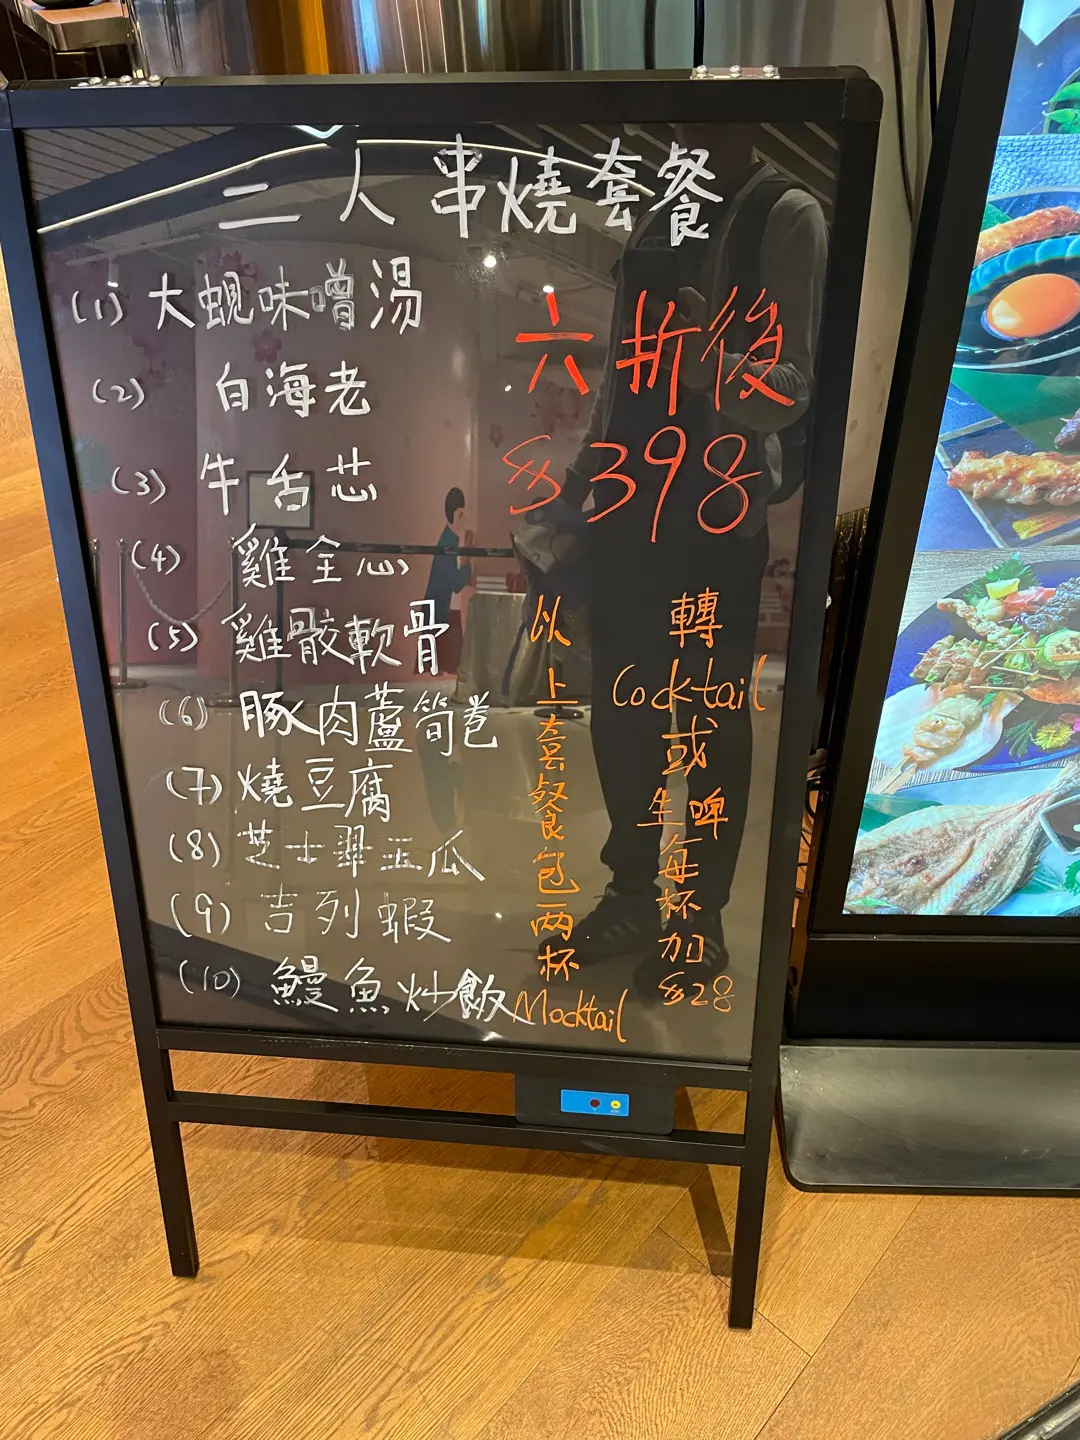 二人串燒套餐
(1) 大蜆味噌湯
(2) 白海老
(3) 牛舌芯
(4) 雞全心
(5) 雞骰軟骨
(6) 豚肉蘆筍卷
(7) 燒豆腐
(8) 芝士翠玉瓜
(9) 吉列蝦
(10) 鰻魚炒飯
六折後
$398
以上套餐包两杯Mocktail
轉Cocktail或生啤每杯加$28